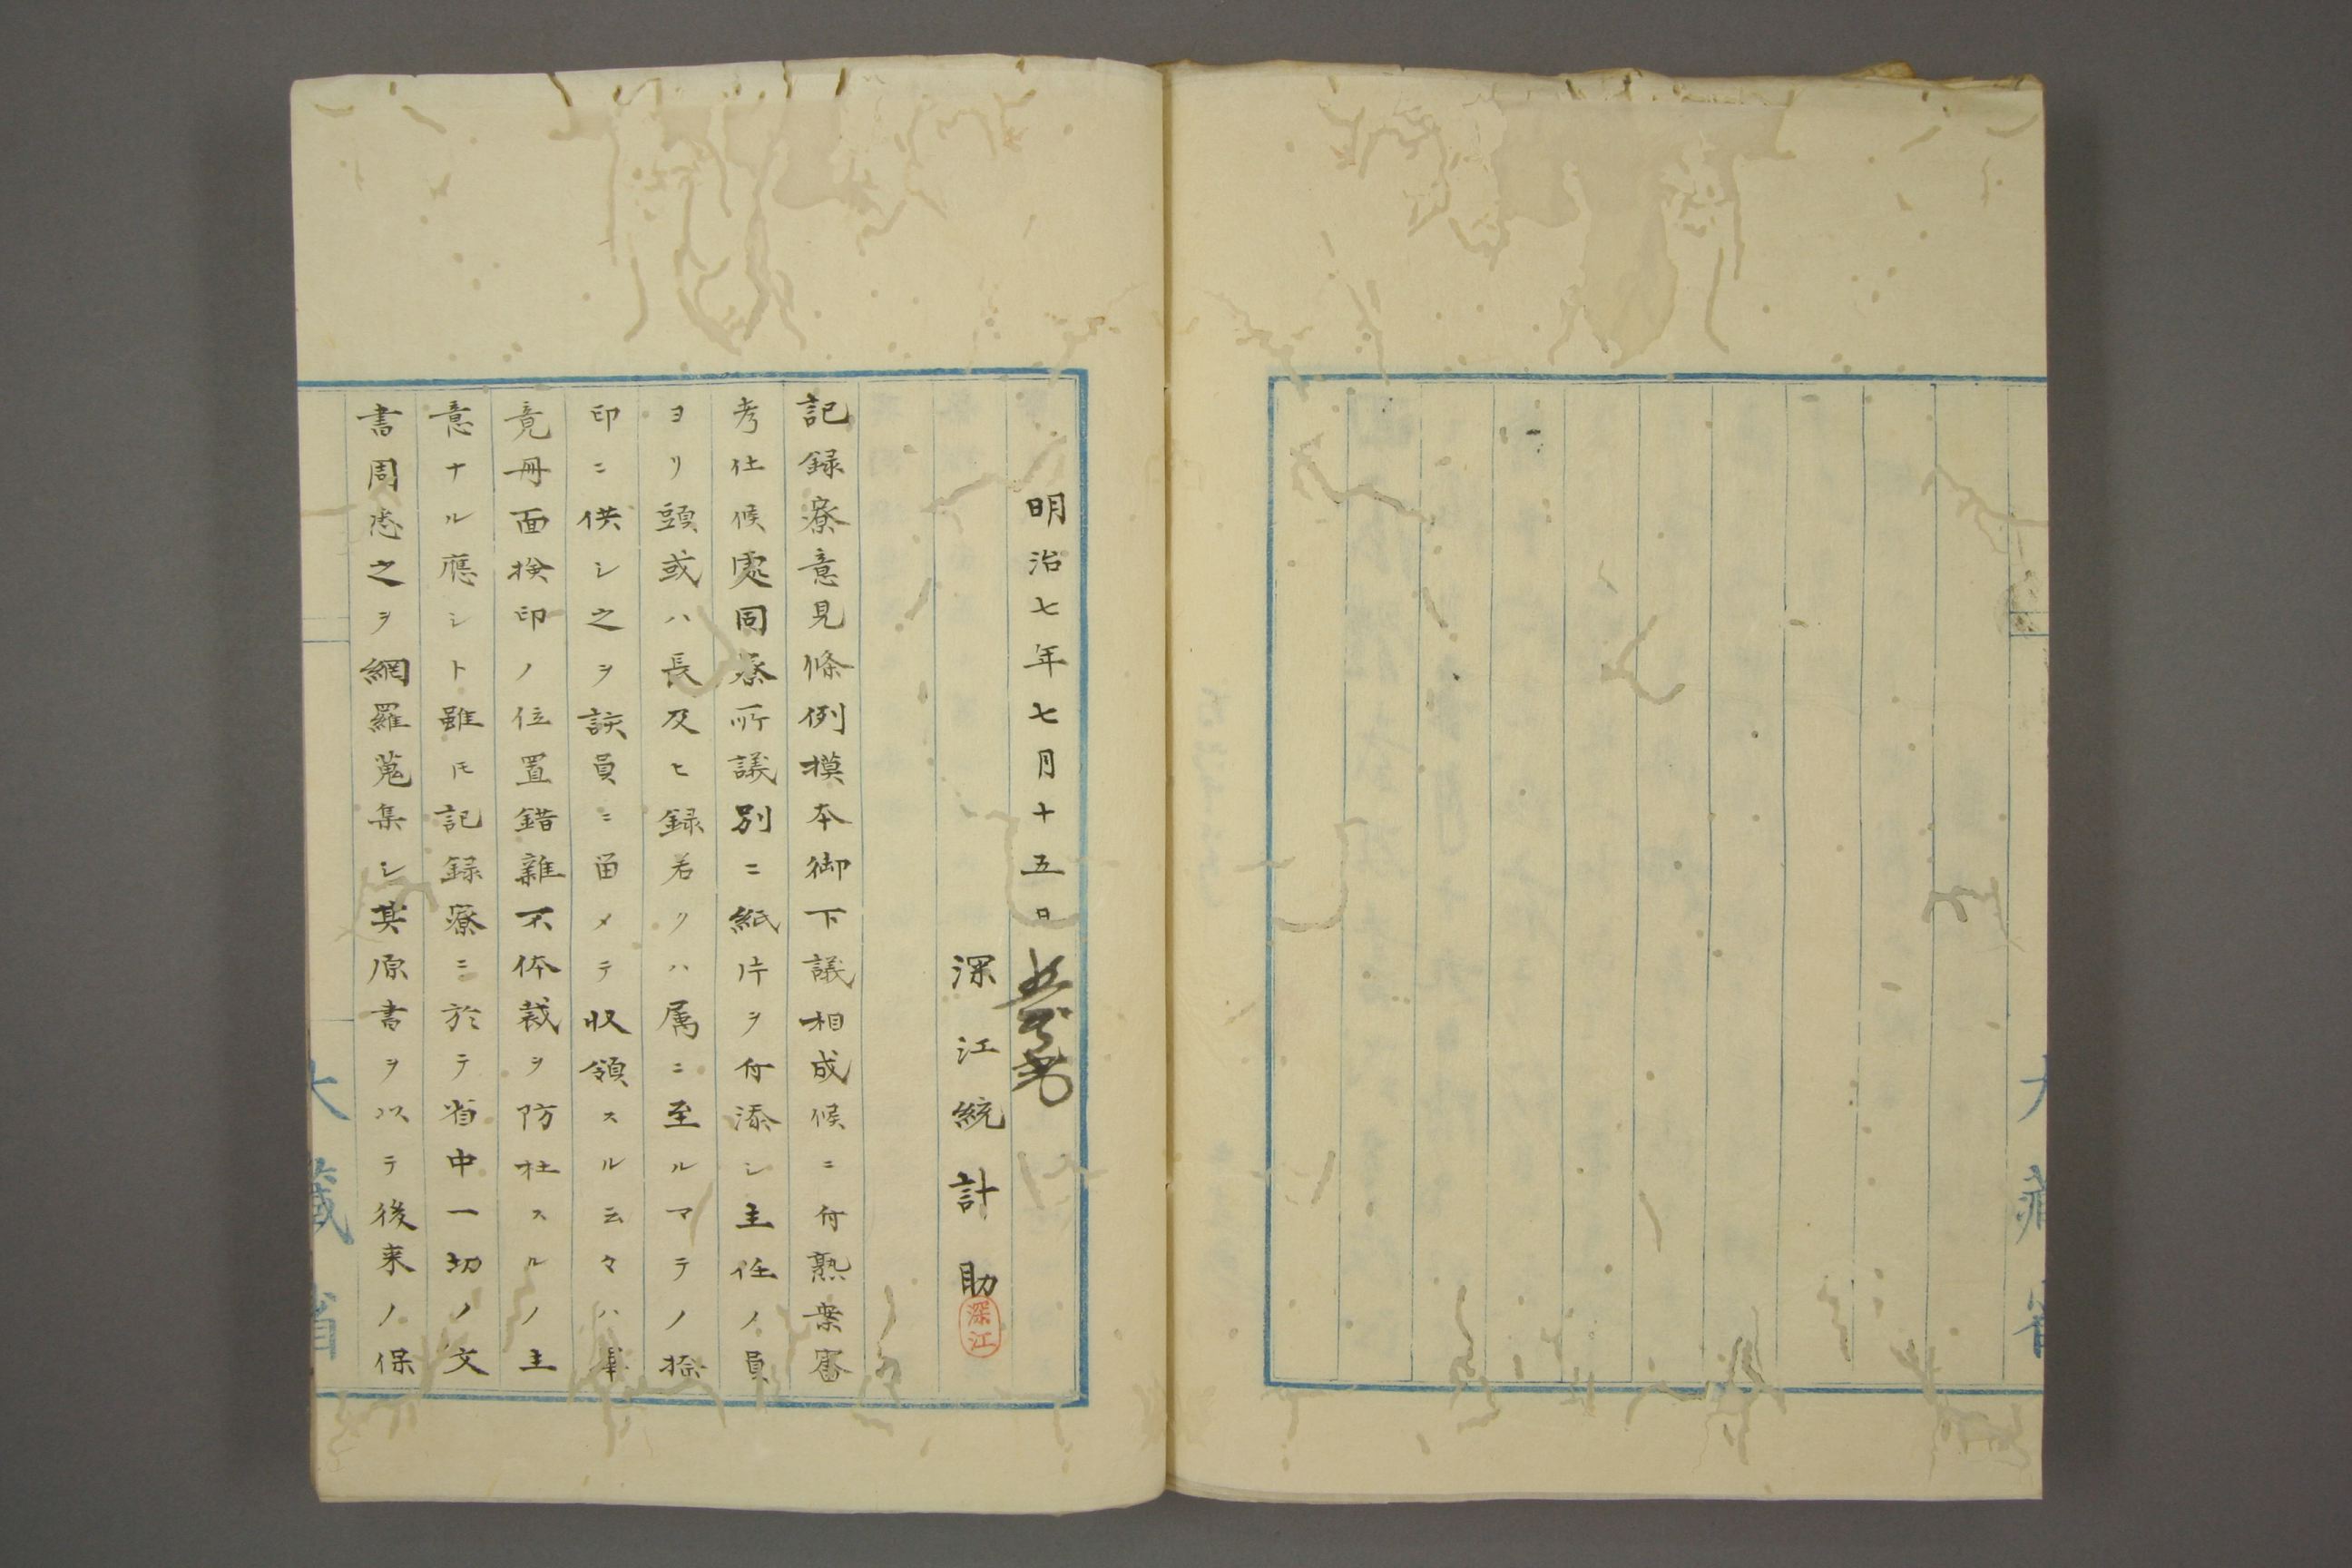 明治七年七月十五日
深江統計助
深江
記録寮意見條例摸本御下議相成候ニ付熟案審
考仕候處同寮所議別ニ紙片ヲ付添シ主任ノ員
ヨリ頭或ハ長及ヒ録若クハ属ニ至ルマテノ捺
印ニ供シ之ヲ該員ニ留メテ収領スル云々ハ畢
竟冊面捺印ノ位置錯雑不体裁ヲ防杜スルノ主
意ナル應シト雖トモ記録寮ニ於テ省中一切ノ文
書周悉之ヲ網羅蒐集シ其原書ヲ以テ後来ノ保
大藏省
大藏省